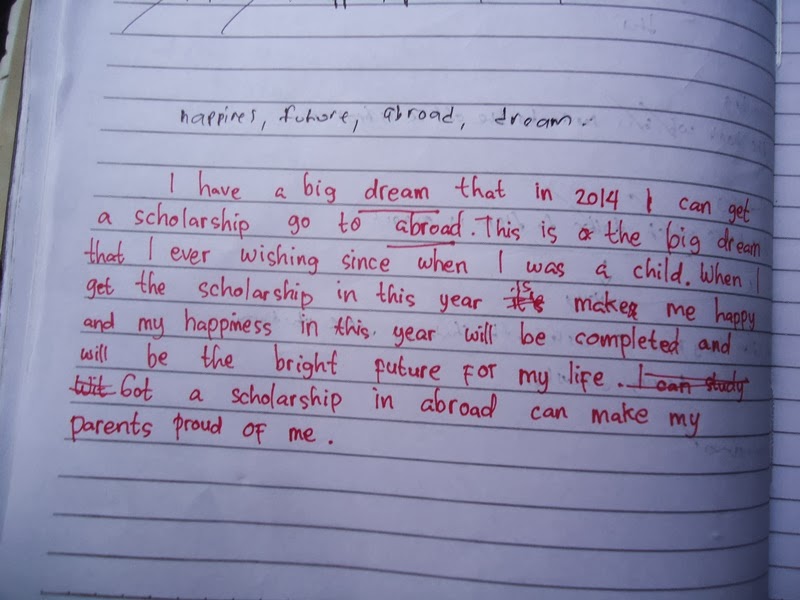 happines, future, abroad, dream.
I have a big dream that in 2014 I can get
a scholarship go to abroad. This is the big dream
that I ever wishing since when I was a child. When I
get the scholarship in this year is make me happy
and my happiness in this year will be completed and
will be the bright future for my life. I can study
Wit Got a scholarship in abroad can make my
parents proud of me.